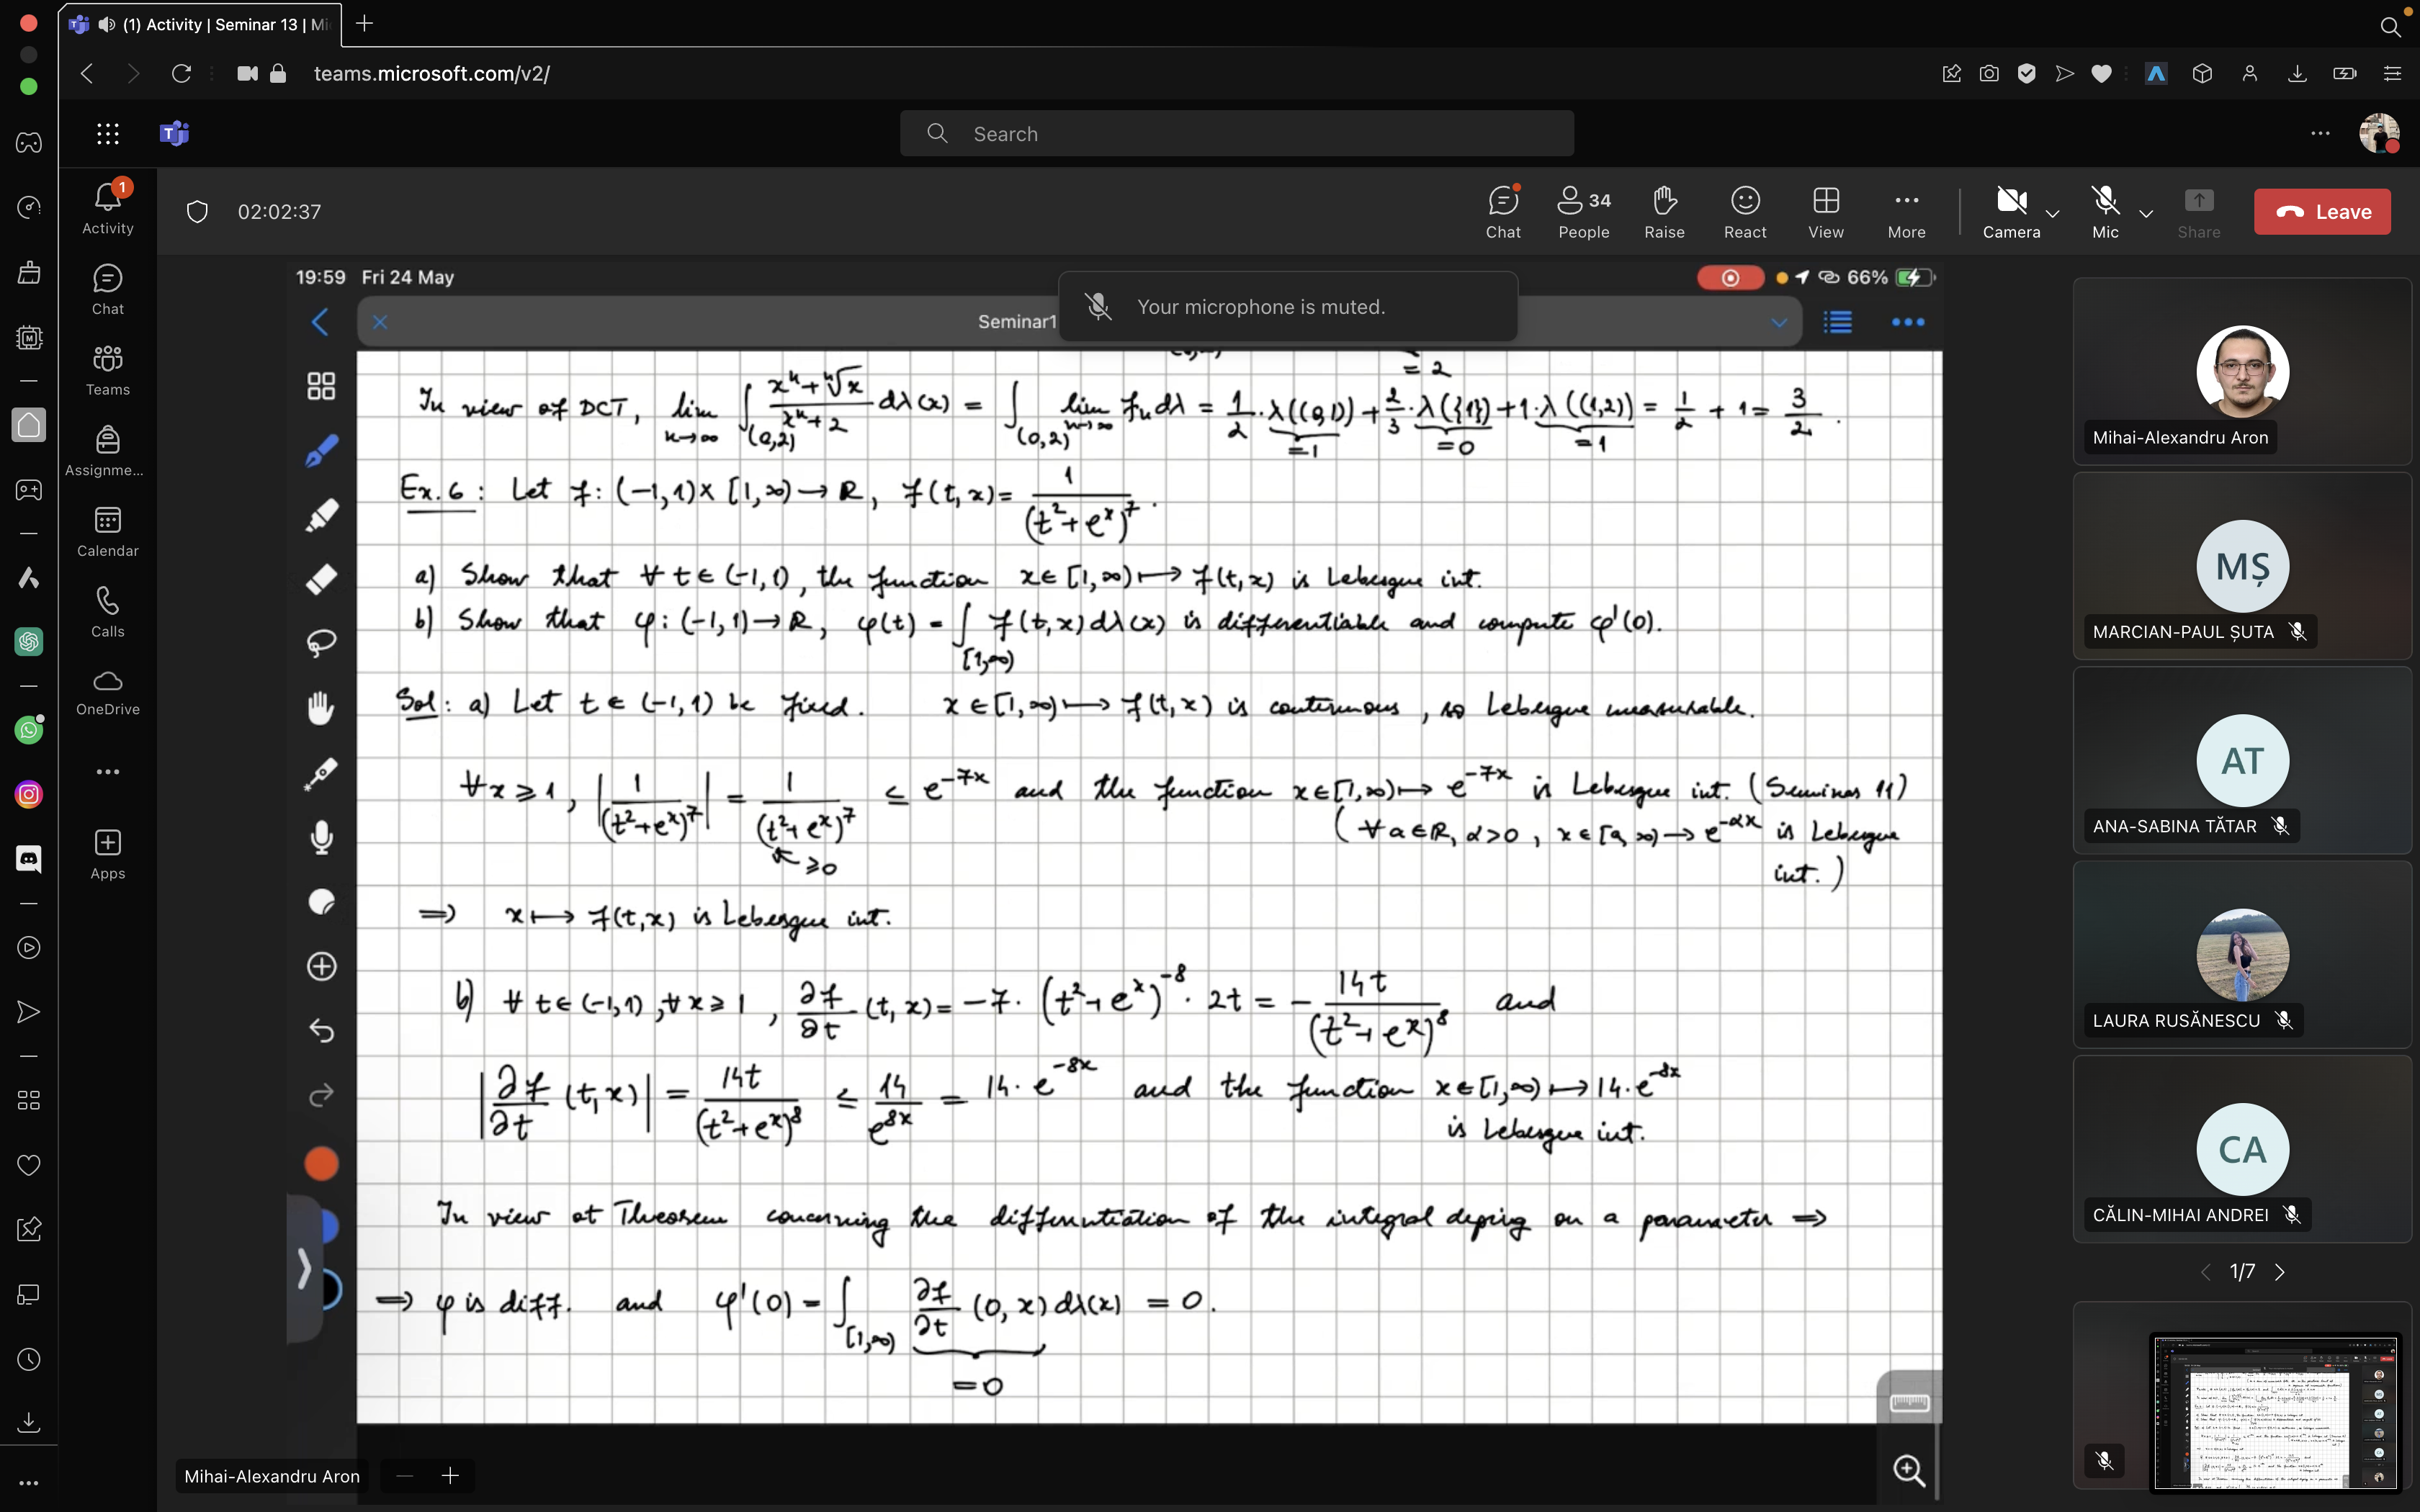 (1) Activity | Seminar 13 | Mi
teams.microsoft.com/v2/
Search
1
Activity
Chat
Teams
Assignme...
Calendar
Calls
OneDrive
Apps
02:02:37
Chat
34
People
Raise
React
View
More
Camera
Mic
Share
Leave
19:59 Fri 24 May
66%
Seminar1
Your microphone is muted.
= 2
In view of DCT, lim n→∞ ∫(0,2) (xⁿ + ⁿ√x)/(xⁿ + 2) dλ(x) = ∫(0,2) lim n→∞ fn dλ = 1/2 · λ((0,1)) + 2/3 · λ({1}) + 1 · λ((1,2)) = 1/2 + 1 = 3/2.
=1 =0 =1
Ex. 6 : Let f : (-1,1) × [1,∞) → R, f(t,x) = 1/(t²+eˣ)⁷.
a) Show that ∀ t ∈ (-1,1), the function x ∈ [1,∞) ↦ f(t,x) is Lebesgue int.
b) Show that φ : (-1,1) → R, φ(t) = ∫[1,∞) f(t,x) dλ(x) is differentiable and compute φ'(0).
Sol : a) Let t ∈ (-1,1) be fixed. x ∈ [1,∞) ↦ f(t,x) is continuous, so Lebesgue measurable.
∀ x ≥ 1, |1/(t²+eˣ)⁷| = 1/(t²+eˣ)⁷ ≤ e⁻⁷ˣ and the function x ∈ [1,∞) ↦ e⁻⁷ˣ is Lebesgue int. (Seminar 11)
≥0
(∀ a ∈ R, α > 0, x ∈ [a,∞) → e^(-αx) is Lebesgue
int.)
⇒ x ↦ f(t,x) is Lebesgue int.
b) ∀ t ∈ (-1,1), ∀ x ≥ 1, ∂f/∂t (t,x) = -7 · (t²+eˣ)⁻⁸ · 2t = - 14t/(t²+eˣ)⁸ and
|∂f/∂t (t,x)| = 14t/(t²+eˣ)⁸ ≤ 14/e⁸ˣ = 14 · e⁻⁸ˣ and the function x ∈ [1,∞) ↦ 14 · e⁻⁸ˣ
is Lebesgue int.
In view of Theorem concerning the differentiation of the integral deping on a parameter ⇒
⇒ φ is diff. and φ'(0) = ∫[1,∞) ∂f/∂t (0,x) dλ(x) = 0.
= 0
Mihai-Alexandru Aron
Mihai-Alexandru Aron
MȘ
MARCIAN-PAUL ȘUTA
AT
ANA-SABINA TĂTAR
LAURA RUSĂNESCU
CA
CĂLIN-MIHAI ANDREI
1/7